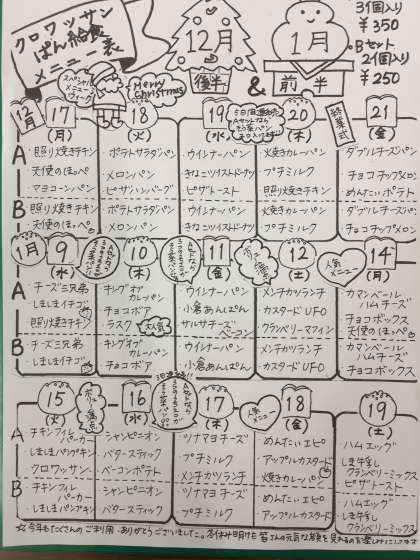 クロワッサン
ぱん給食
メニュー表
スペシャル
メニュー
ウィーク
Merry
Christmas
12月
後半
&
1月
前半
3個入り
¥350
Bセット
2個入り
¥250
12月
17
(月)
18
(火)
19
(水)
20
(木)
終業式
21
(金)
A
・照り焼きチキン
・天使のほっぺ
・マヨコーンパン
・ポテトサラダパン
・メロンパン
・ピザハンバーグ
・ウインナーパン
・きなこツイストドーナツ
・ピザトースト
・焼きカレーパン
・プチミルク
・照り焼きチキン
・ダブルチーズパン
・チョコチップメロン
・めんたいポテト
B
・照り焼きチキン
・天使のほっぺ
・ポテトサラダパン
・メロンパン
・ウインナーパン
・きなこツイストドーナツ
・焼きカレーパン
・プチミルク
・ダブルチーズパン
・チョコチップメロン
1月
9
(水)
10
(木)
11
(金)
12
(土)
人気
メニュー
14
(月)
A
・チーズ三兄弟
・しましまイチゴ
・照り焼きチキン
・キングオブ
カレーパン
・チョコボア
・ラスク
大人気
・ウインナーパン
・小倉あんぱん
・サルサチーズ
ベーコン
・メンチカツランチ
・カスタードUFO
・クランベリーマフィン
・カマンベール
ハムチーズ
・チョコボックス
・天使のほっぺ
B
・チーズ三兄弟
・しましまイチゴ
・キングオブ
カレーパン
・チョコボア
・ウインナーパン
・小倉あんぱん
・メンチカツランチ
・カスタードUFO
・カマンベール
ハムチーズ
・チョコボックス
15
(火)
16
(水)
17
(木)
人気
メニュー
18
(金)
19
(土)
A
・チキンフィレ
バーガー
・しましまパンプキン
・クロワッサン
・シャンピニオン
・バタースティック
・ベーコンポテト
・ツナマヨチーズ
・プチミルク
・メンチカツランチ
・めんたいエピ
・アップルカスタード
・焼きカレーパン
・ハムエッグ
・しま牛乳
クランベリーミックス
・ピザトースト
B
・チキンフィレ
バーガー
・しましまパンプキン
・シャンピニオン
・バタースティック
・ツナマヨチーズ
・プチミルク
・めんたいエピ
・アップルカスタード
・ハムエッグ
・しま牛乳
クランベリーミックス
☆今年もたくさんのご利用、ありがとうございました。冬休み明けも皆さんの元気な笑顔を見れるのを楽しみにしてます